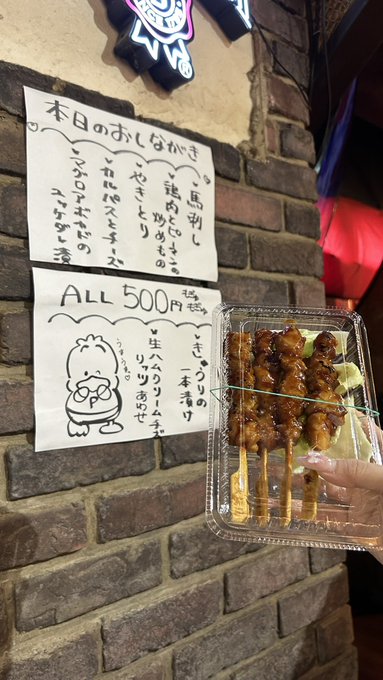 本日のおしながき
馬刺し
鶏肉とピーマンの
炒めもの
やきとり
カルパスとチーズ
マグロアボカドの
ユッケダレ漬
ALL 500円
きゅうりの
一本漬け
生ハムクリームチーズ
リッツあわせ